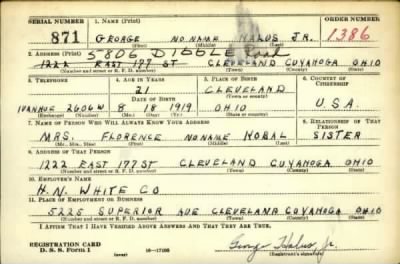 SERIAL NUMBER 1. NAME (Print) ORDER NUMBER
871 GEORGE NO NAME HALUS JR. 1386
(First) (Middle) (Last)
2. ADDRESS (Print) 5806 DIBBLE Road
1222 EAST 177 ST CLEVELAND CUYAHOGA OHIO
(Number and street or R. F. D. number) (Town) (County) (State)
3. TELEPHONE 4. AGE IN YEARS 5. PLACE OF BIRTH 6. COUNTRY OF CITIZENSHIP
21 CLEVELAND
DATE OF BIRTH (Town or county)
IVANHOE 2606W 8 18 1919 OHIO U.S.A.
(Exchange) (Number) (Mo.) (Day) (Yr.) (State or country)
7. NAME OF PERSON WHO WILL ALWAYS KNOW YOUR ADDRESS 8. RELATIONSHIP OF THAT PERSON
MRS. FLORENCE NO NAME KOBAL SISTER
(Mr., Mrs., Miss) (First) (Middle) (Last)
9. ADDRESS OF THAT PERSON
1222 EAST 177 ST CLEVELAND CUYAHOGA OHIO
(Number and street or R. F. D. number) (Town) (County) (State)
10. EMPLOYER'S NAME
H.N. WHITE CO
11. PLACE OF EMPLOYMENT OR BUSINESS
5225 SUPERIOR AVE CLEVELAND CUYAHOGA OHIO
(Number and street or R. F. D. number) (Town) (County) (State)
I AFFIRM THAT I HAVE VERIFIED ABOVE ANSWERS AND THAT THEY ARE TRUE.
REGISTRATION CARD
D. S. S. Form 1 16-17105 George Halus, Jr.
(Registrant's signature)